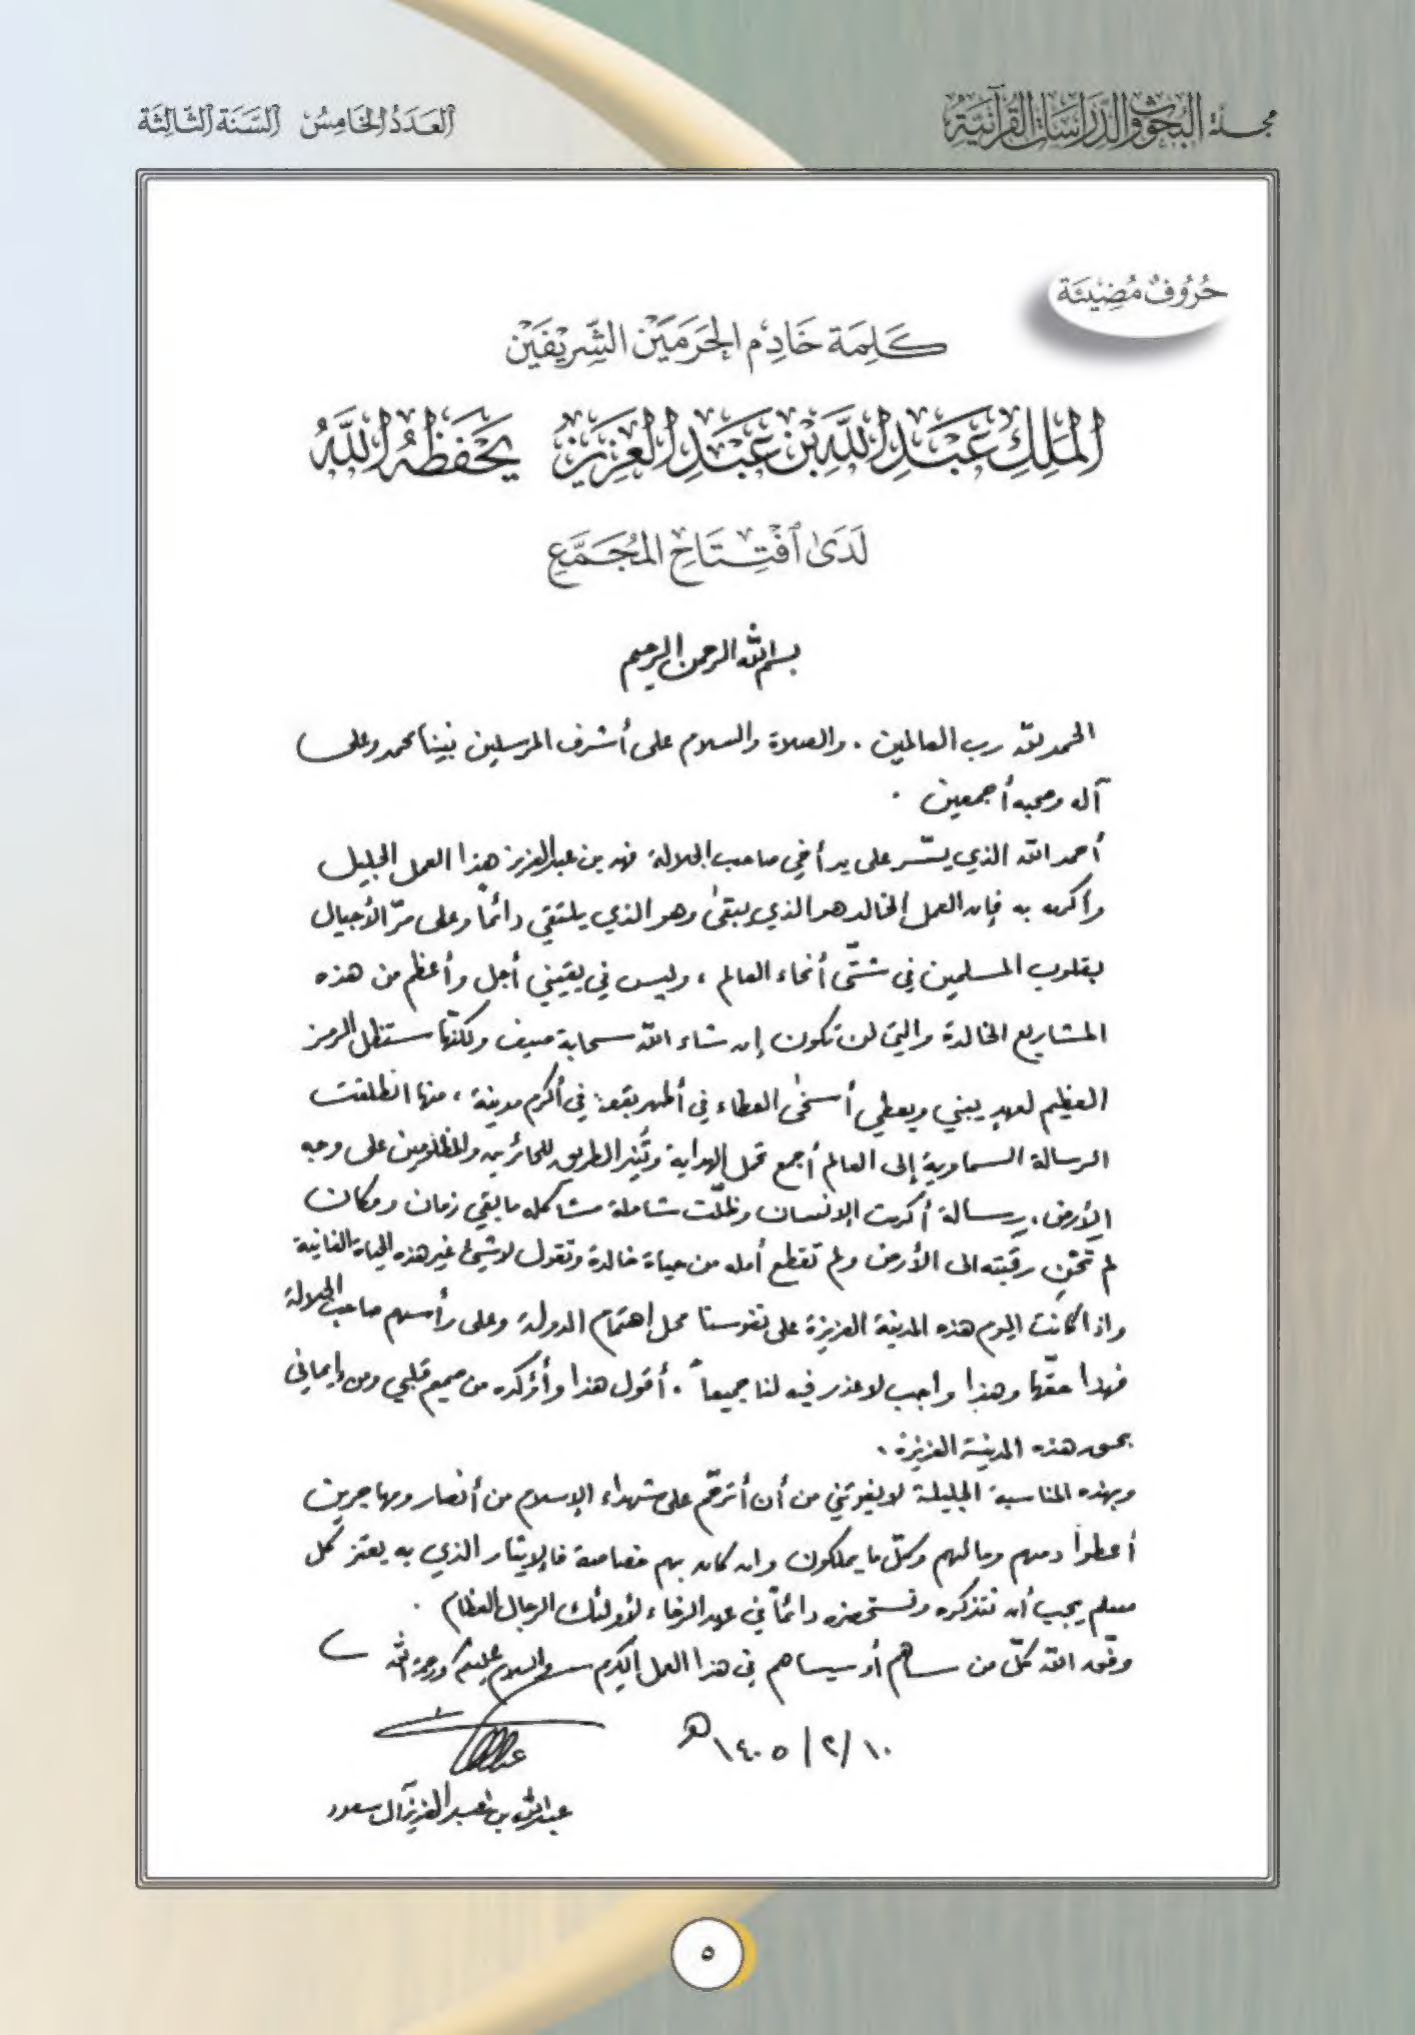 مجلة البحوث والدراسات القرآنية
العَدَدُ الخَامِسُ السَّنَة الثَّالِثَة
حُرُوفٌ مُضِيْئَة
كَلِمَة خَادِم الحَرَمَيْن الشَّرِيْفَيْن
المَلِكِ عَبْدِ اللَّهِ بْن عَبْدِ العَزِيز يَحْفَظْهُ اللَّهُ
لَدَىٰ ٱفْتِتَاحِ المُجَمَّعِ
بسم الله الرحمن الرحيم
الحمد لله رب العالمين . والصلاة والسلام على أشرف المرسلين نبينا محمد وعلى
آله وصحبه أجمعين .
أحمد الله الذي يسّر على يد أخي صاحب الجلالة فهد بن عبد العزيز هذا العمل الجليل
وأكرمه به فإن العمل الخالد هو الذي يبقىٰ وهو الذي يلتقي دائماً وعلى مرّ الأجيال
بقلوب المسلمين في شتّى أنحاء العالم ، وليس في يقيني أجل وأعظم من هذه
المشاريع الخالدة والتي لن تكون إن شاء الله سحابة صيف ولكنّها ستظل الرمز
العظيم لعهدٍ يبني ويعطي أسخىٰ العطاء في أطهر بقعة في أكرم مدينة ، منها انطلقت
الرسالة السماوية إلى العالم أجمع تحمل الهداية وتُنير الطريق للحائرين والمظلومين على وجه
الأرض ، رسالة أكرمت الإنسان وظلّت شاملة مشاكله ما بقي زمان ومكان
لم تحنِ رقبته الى الأرض ولم تقطع أمله من حياة خالدة وتقول لا شيئ غير هذه الحياة الفانية
واذا كانت اليوم هذه المدينة العزيزة على نفوسنا محل اهتمام الدولة وعلى رأسهم صاحب الجلالة
فهذا حقّها وهذا واجب لا عذر فيه لنا جميعاً . أقول هذا وأؤكده من صميم قلبي ومن إيماني
بحق هذه المدينة العزيزة .
وبهذه المناسبة الجليلة لا يفوتني من أن أترحّم على شهداء الإسلام من أنصار ومهاجرين
أعطوا دمهم ومالهم وكلّ ما يملكون وان كان بهم خصاصة فالإيثار الذي به يعتز كل
مسلم يجب أن نتذكره ونستحضره دائماً في عهد الرخاء لأولئك الرجال العظام .
وفّق الله كلّ من ساهم أو سيساهم في هذا العمل الكريم والسلام عليكم ورحمة الله
١٠/٢/١٤٠٥هـ
عبدالله بن عبد العزيز آل سعود
٥